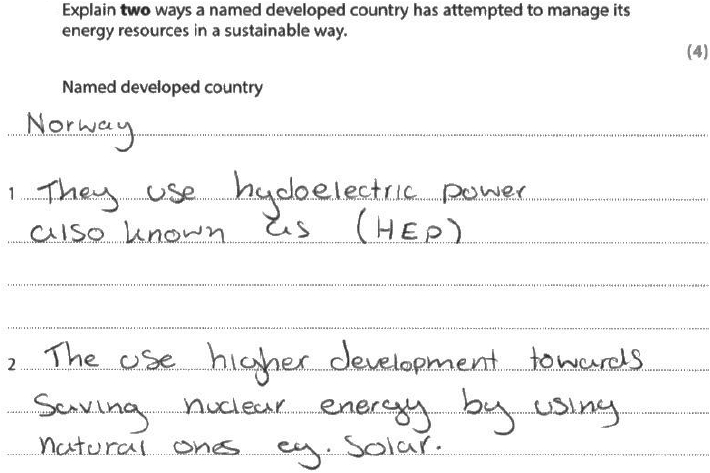 Explain two ways a named developed country has attempted to manage its
energy resources in a sustainable way.
(4)
Named developed country
Norway
1 They use hydoelectric power
also known as (HEP)
2 The use higher development towards
Saving nuclear energy by using
natural ones eg. Solar.